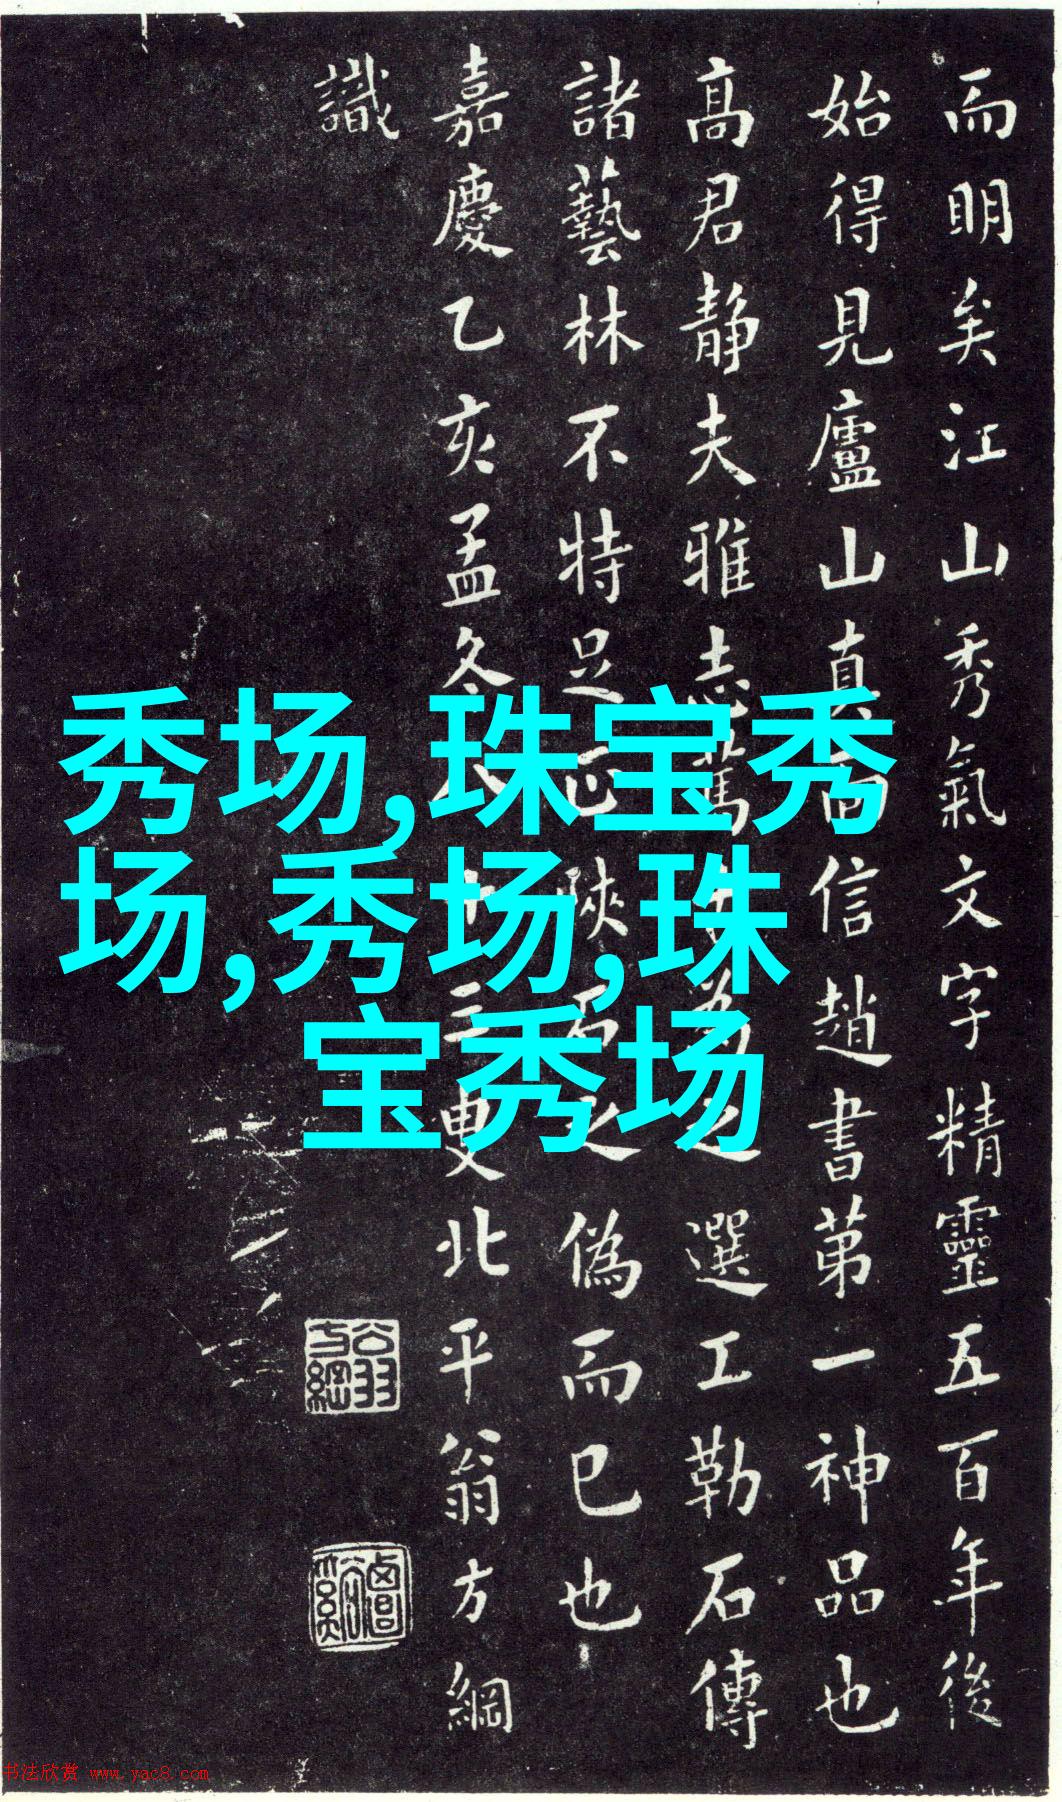 而明矣江山秀氣文字精靈五百年後
始得見廬山真面信趙書第一神品也
高君静夫雅志篤
選工勒石傳
諸藝林不特足正陝石之
偽而已也
嘉慶乙亥孟冬
北平翁方綱
識
秀场,珠宝秀
场,秀场,珠
宝秀场
翁方綱
书法欣赏 www.yac8.com